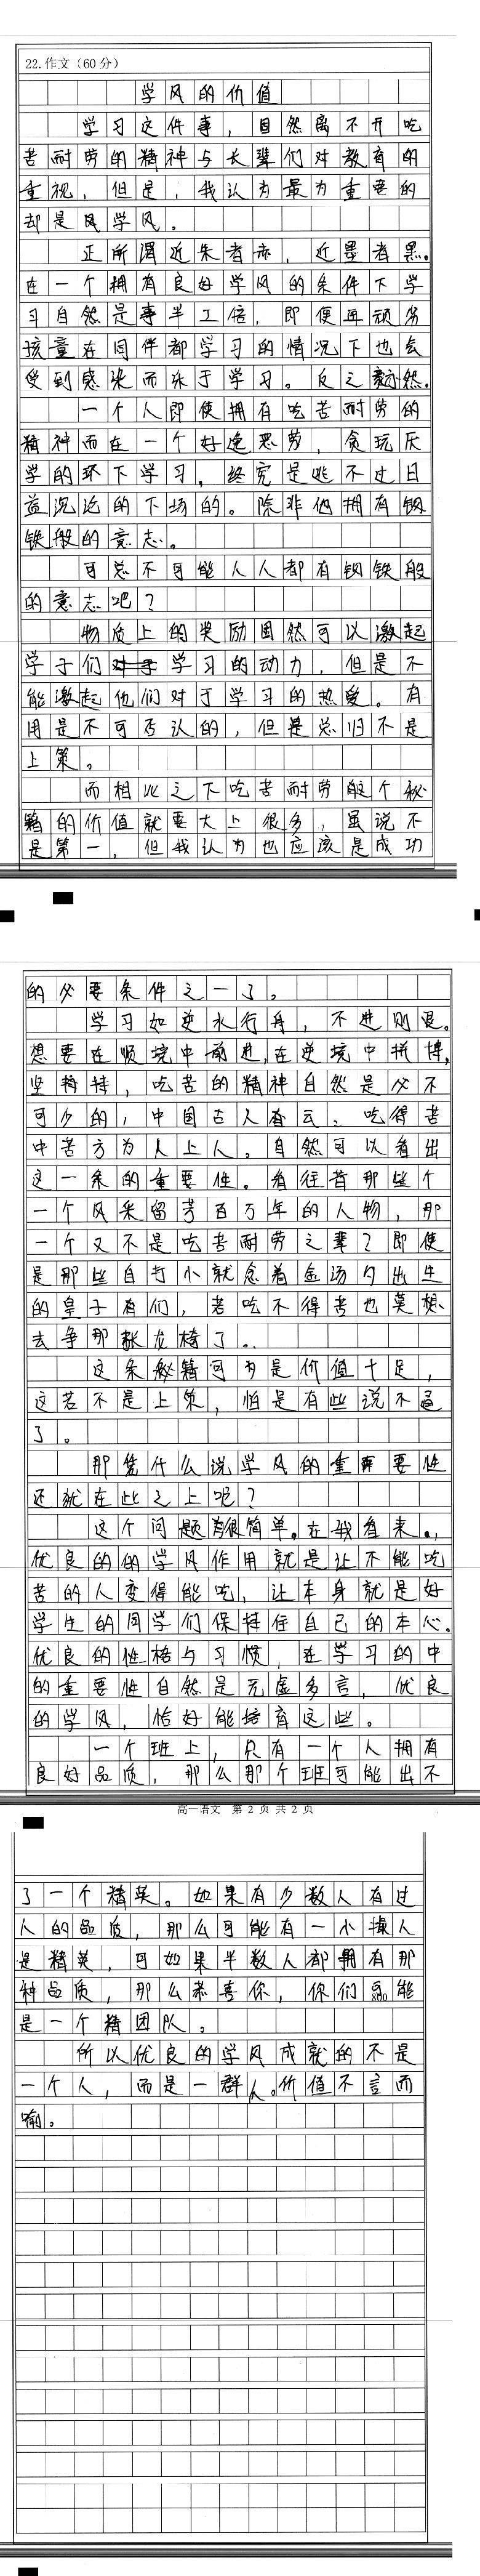 22.作文（60分）
学风的价值
学习这件事，自然离不开吃
苦耐劳的精神与长辈们对教育的
重视，但是，我认为最为重要的
却是风学风。
正所谓近朱者赤，近墨者黑。
在一个拥有良好学风的条件下学
习自然是事半工倍，即便再顽劣
孩童在同伴都学习的情况下也会
受到感染而乐于学习。反之亦然。
一个人即使拥有吃苦耐劳的
精神而在一个好逸恶劳，贪玩厌
学的环下学习，终究是逃不过日
益沉沦的下场的。除非他拥有钢
铁般的意志。
可总不可能人人都有钢铁般
的意志吧？
物质上的奖励固然可以激起
学子们学习的动力，但是不
能激起他们对于学习的热爱。有
用是不可否认的，但是总归不是
上策。
而相比之下吃苦耐劳这个秘
籍的价值就要大上很多，虽说不
是第一，但我认为也应该是成功
的必要条件之一了。
学习如逆水行舟，不进则退。
想要在顺境中前进，在逆境中拼博，
坚持，吃苦的精神自然是必不
可少的，中国古人有云：吃得苦
中苦方为人上人。自然可以看出
这一条的重要性。看往昔那些个
一个风采留芳百万年的人物，那
一个又不是吃苦耐劳之辈？即使
是那些自打小就含着金汤勺出生
的皇子有们，若吃不得苦也莫想
去争那张龙椅了。
这条秘籍可为是价值十足，
这若不是上策，怕是有些说不过
了。
那凭什么说学风的重要性
还就在此之上呢？
这个问题很简单。在我看来，
优良的的学风作用就是让不能吃
苦的人变得能吃，让本身就是好
学生的同学们保持住自己的本心。
优良的性格与习惯，在学习的中
的重要性自然是无虚多言，优良
的学风，恰好能培育这些。
一个班上，只有一个人拥有
良好品质，那么那个班可能出不
高一语文 第 2 页 共 2 页
了一个精英。如果有少数人有过
人的品质，那么可能有一小撮人
是精英，可如果半数人都拥有那
种品质，那么恭喜你，你们可能
是一个精团队。
所以优良的学风成就的不是
一个人，而是一群人。价值不言而
喻。